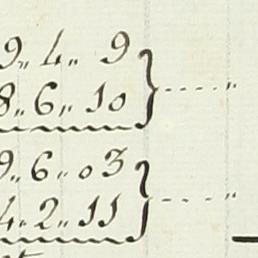 9,, 4,, 9 } ---- ,,
8,, 6,, 10
9,, 6,, 03 } ---- ,,
4,, 2,, 11